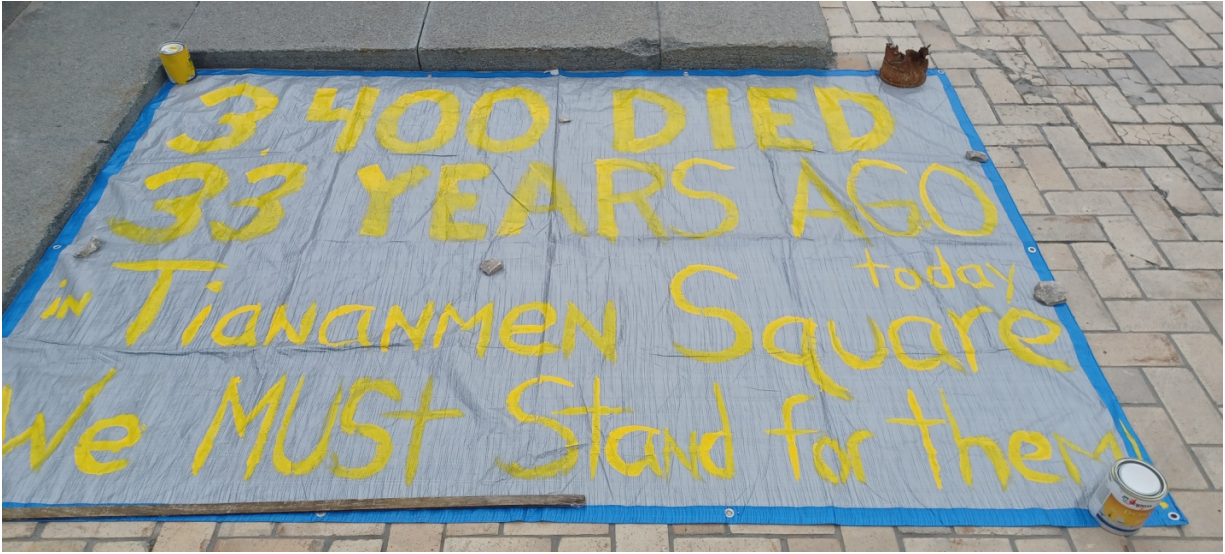 3,400 DIED
33 YEARS AGO
today
in Tiananmen Square
We MUST Stand for them!